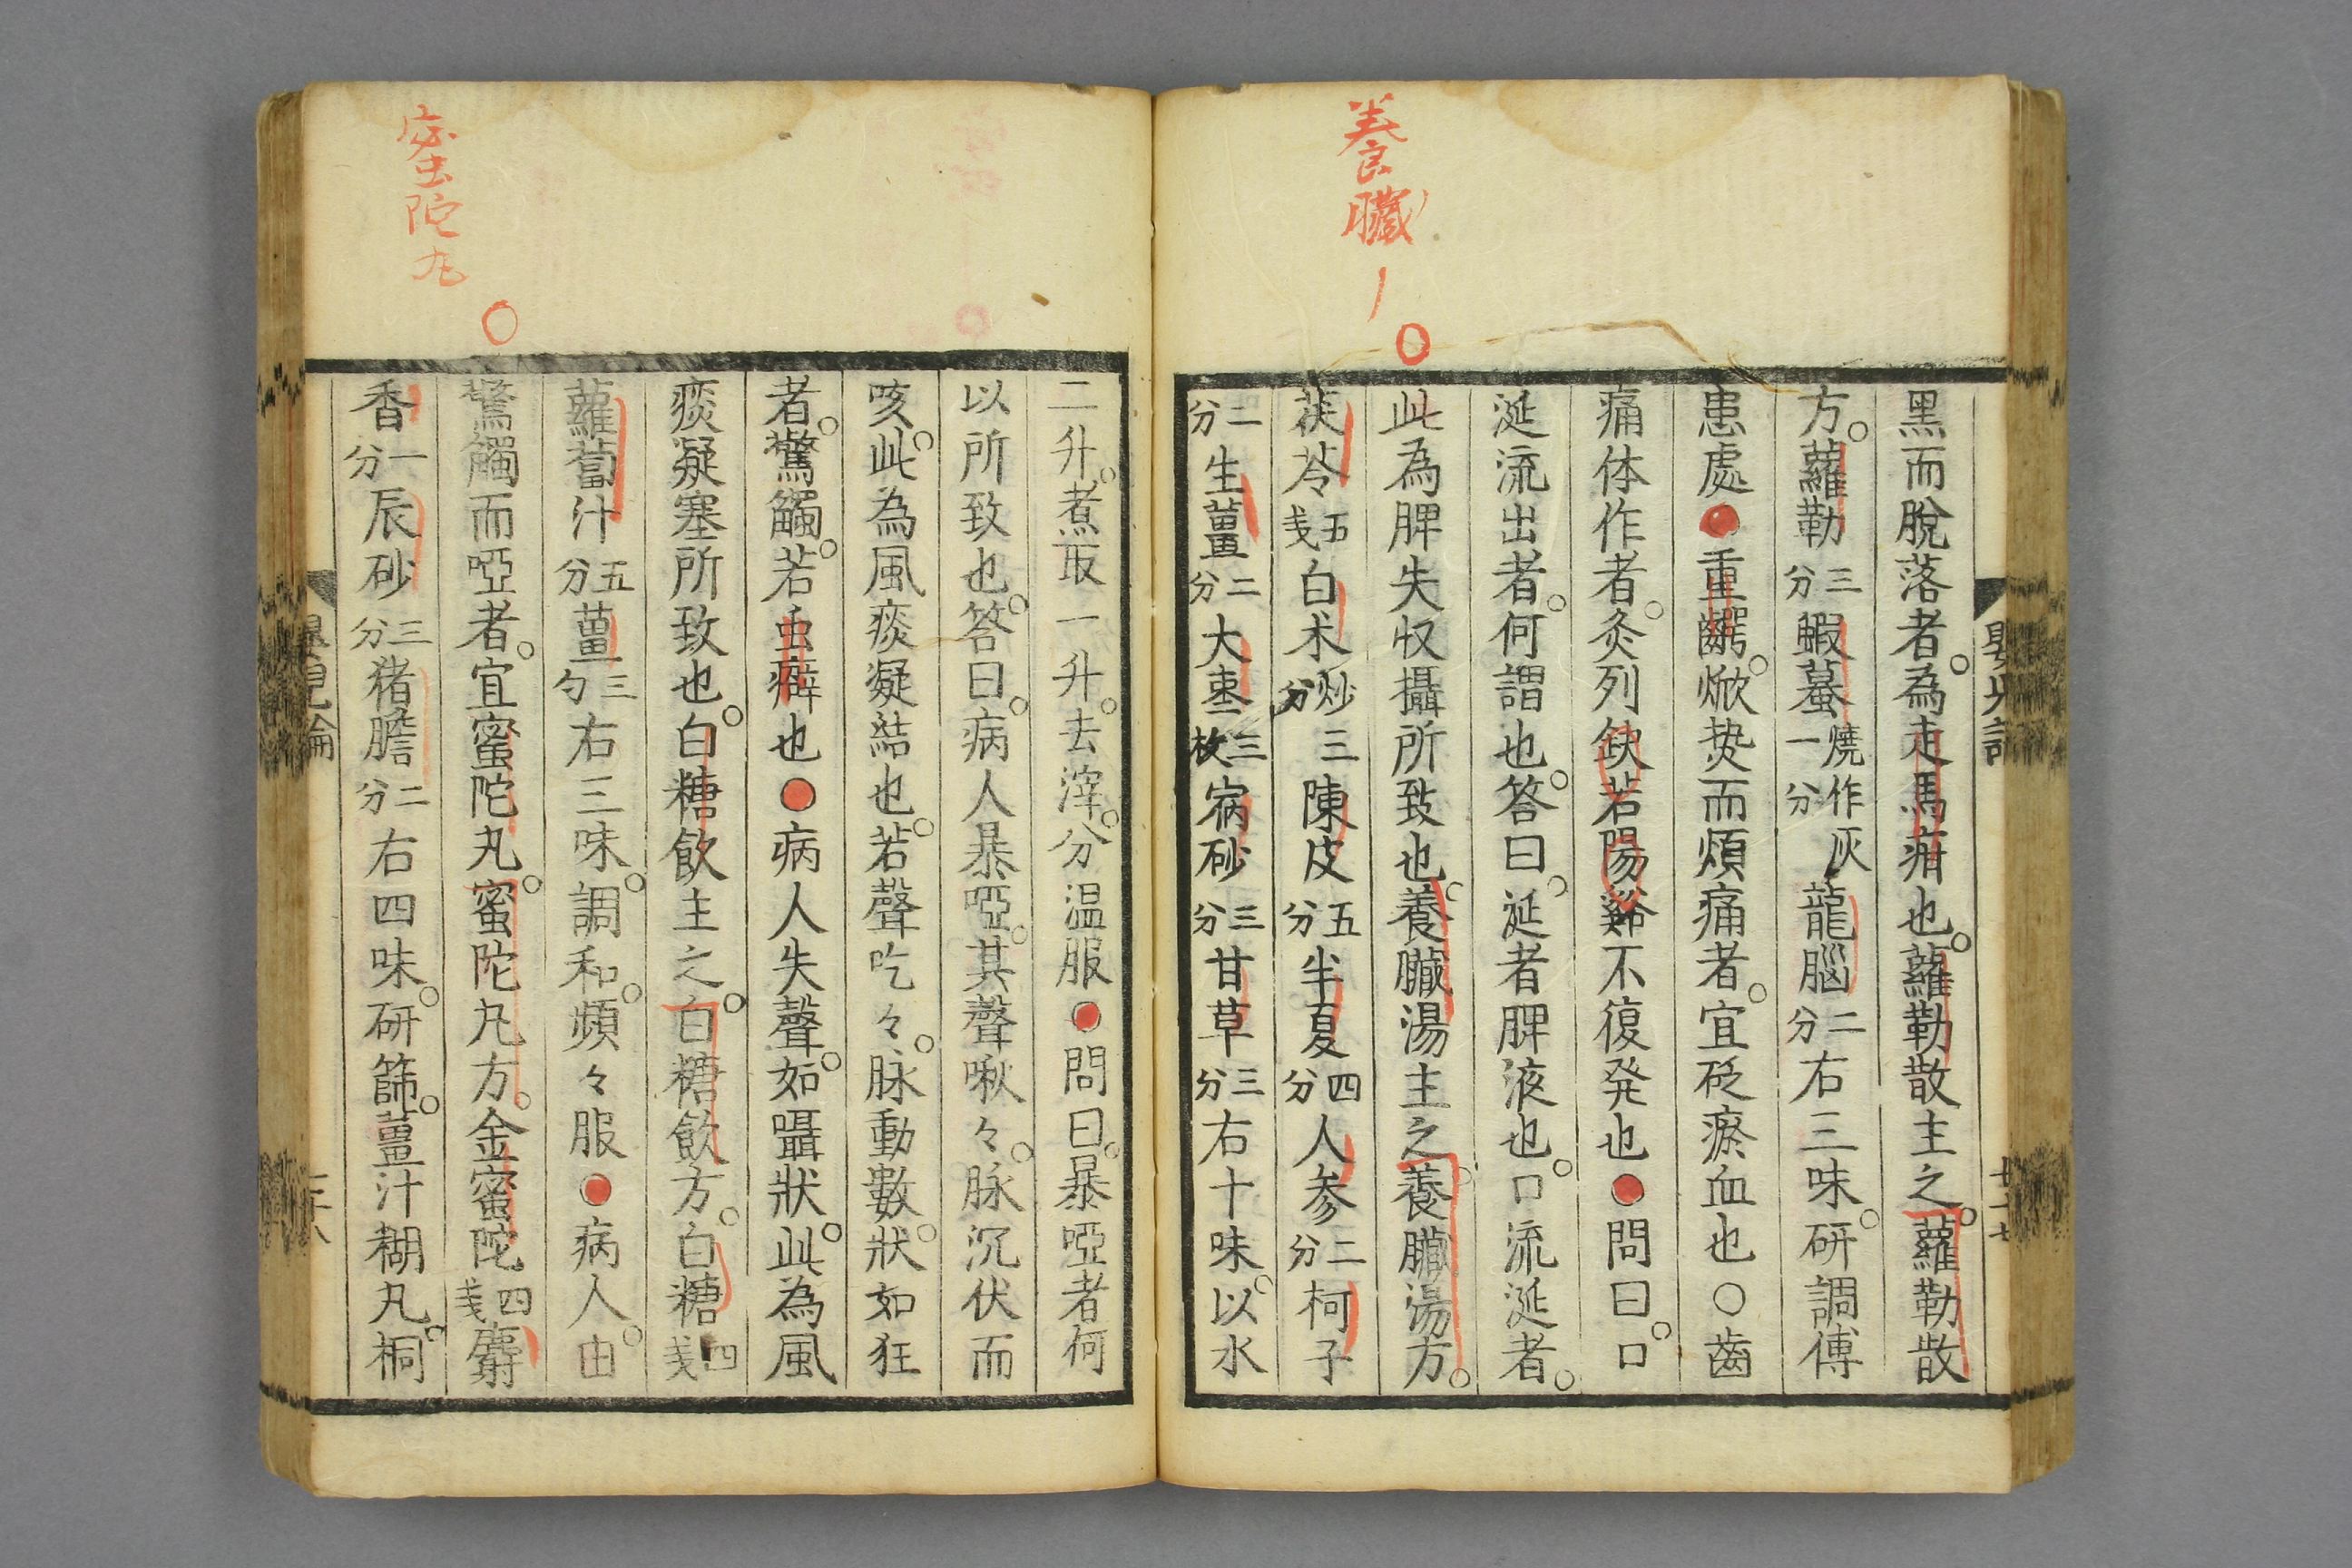 養臓
黑而脫落者為走馬疳也蘿勒散主之蘿勒散
方蘿勒三分蝦蟇燒作灰一分龍腦二分右三味研調傅
患處●重齶焮㷫而煩痛者宜砭瘀血也○齒
痛体作者灸列缺若陽谿不復発也●問曰口
涎流出者何謂也答曰涎者脾液也口流涎者
此為脾失収攝所致也養臟湯主之養臟湯方
茯苓五戔白朮炒三分陳皮五分半夏四分人参二分柯子
二分生薑二分大枣三枚 砂三分甘草三分右十味以水
蜜陀丸
二升煮取一升去滓分温服●問曰暴啞者何
以所致也答曰病人暴啞其聲啾々脉沉伏而
咳此為風痰凝結也若聲吃々脉動數狀如狂
者驚觸若虫癖也●病人失聲如囁狀此為風
痰凝塞所致也白糖飲主之白糖飲方白糖四戔
蘿蔔汁五分薑三勺右三味調和頻々服●病人由
驚觸而啞者宜蜜陀丸蜜陀丸方金蜜陀四戔麝
香一分辰砂三分猪膽二分右四味研篩薑汁糊丸桐